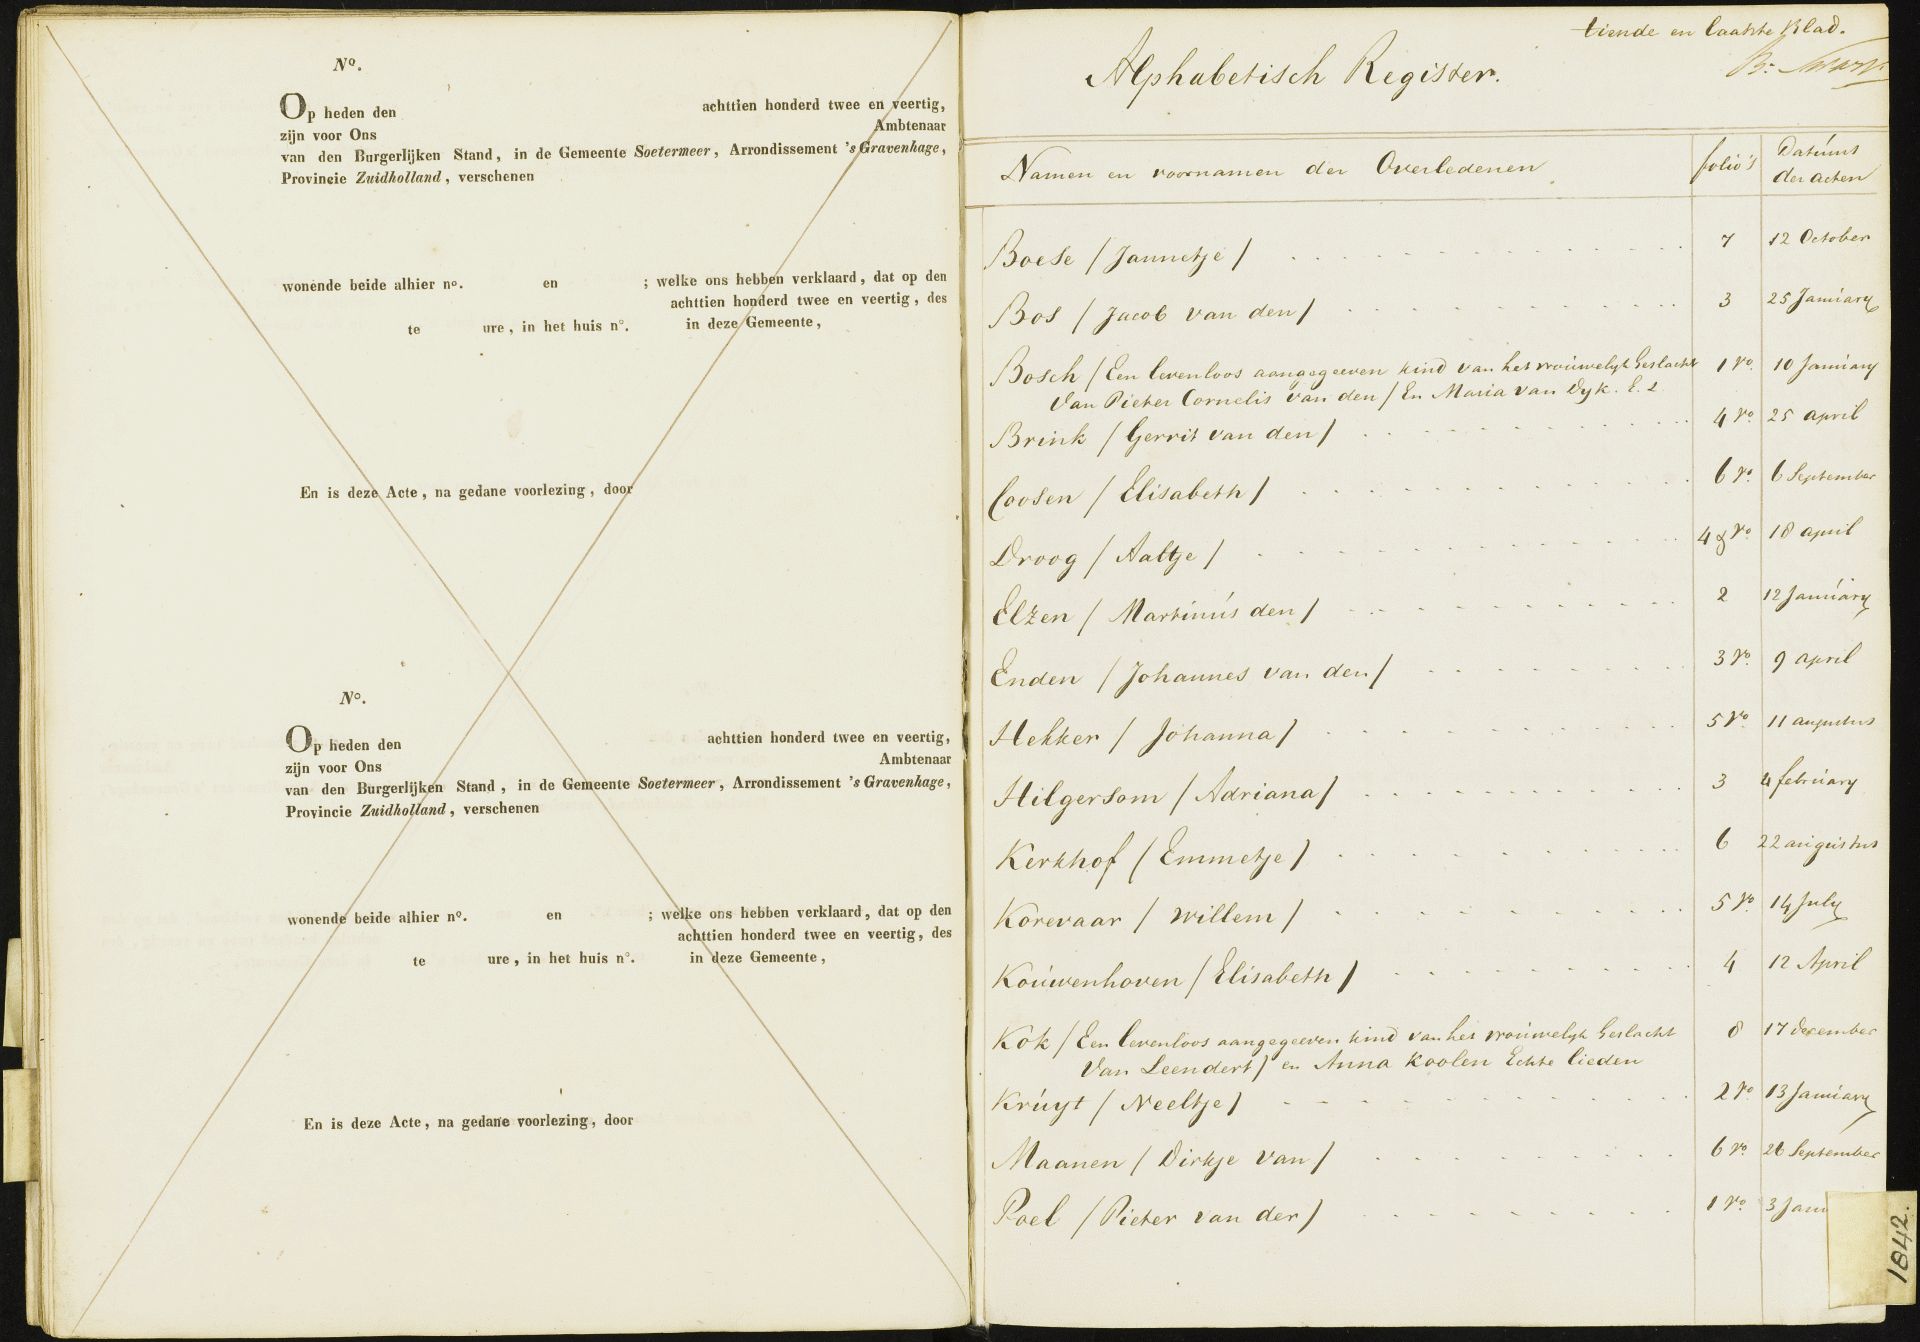 No.
Op heden den achttien honderd twee en veertig,
zijn voor Ons Ambtenaar
van den Burgerlijken Stand, in de Gemeente Soetermeer, Arrondissement 's Gravenhage,
Provincie Zuidholland, verschenen
wonende beide alhier no. en ; welke ons hebben verklaard, dat op den
achttien honderd twee en veertig, des
te ure, in het huis no. in deze Gemeente,
En is deze Acte, na gedane voorlezing, door
No.
Op heden den achttien honderd twee en veertig,
zijn voor Ons Ambtenaar
van den Burgerlijken Stand, in de Gemeente Soetermeer, Arrondissement 's Gravenhage,
Provincie Zuidholland, verschenen
wonende beide alhier no. en ; welke ons hebben verklaard, dat op den
achttien honderd twee en veertig, des
te ure, in het huis no. in deze Gemeente,
En is deze Acte, na gedane voorlezing, door
tiende en laatste Blad.
Alphabetisch Register.
Namen en voornamen der Overledenen folio's Datums
der acten
Boese / Jannetje / 7 12 October
Bos / Jacob van den / 3 25 January
Bosch / Een levenloos aangegeeven kind van het vrouwelyk Geslacht 1 vo. 10 January
Van Pieter Cornelis van den / En Maria van Dyk. E. L
Brink / Gerrit van den / 4 vo 25 april
Coosen / Elisabeth / 6 vo. 6 September
Droog / Aaltje / 4 vo 18 april
Elzen / Martinus den / 2 12 January
Enden / Johannes van den / 3 vo. 9 april
Hekker / Johanna / 5 vo 11 augustus
Hilgersom / Adriana / 3 4 february
Kerkhof / Emmetje / 6 22 augustus
Korevaar / Willem / 5 vo. 14 July
Kouwenhoven / Elisabeth / 4 12 April
Kok / Een levenloos aangegeeven kind van het vrouwelyk Geslacht 8 17 december
Van Leendert / en Anna Koolen Echte lieden
Kruyt / Neeltje / 2 vo 13 January
Maanen / Dirkje van / 6 vo. 26 September
Poel / Pieter van der / 1 vo. 3 Janu
1842.